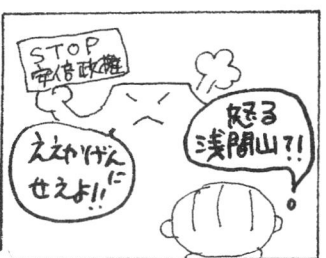 STOP
安倍政権
ええかげん
に
せえよ!!
怒る
浅間山?!